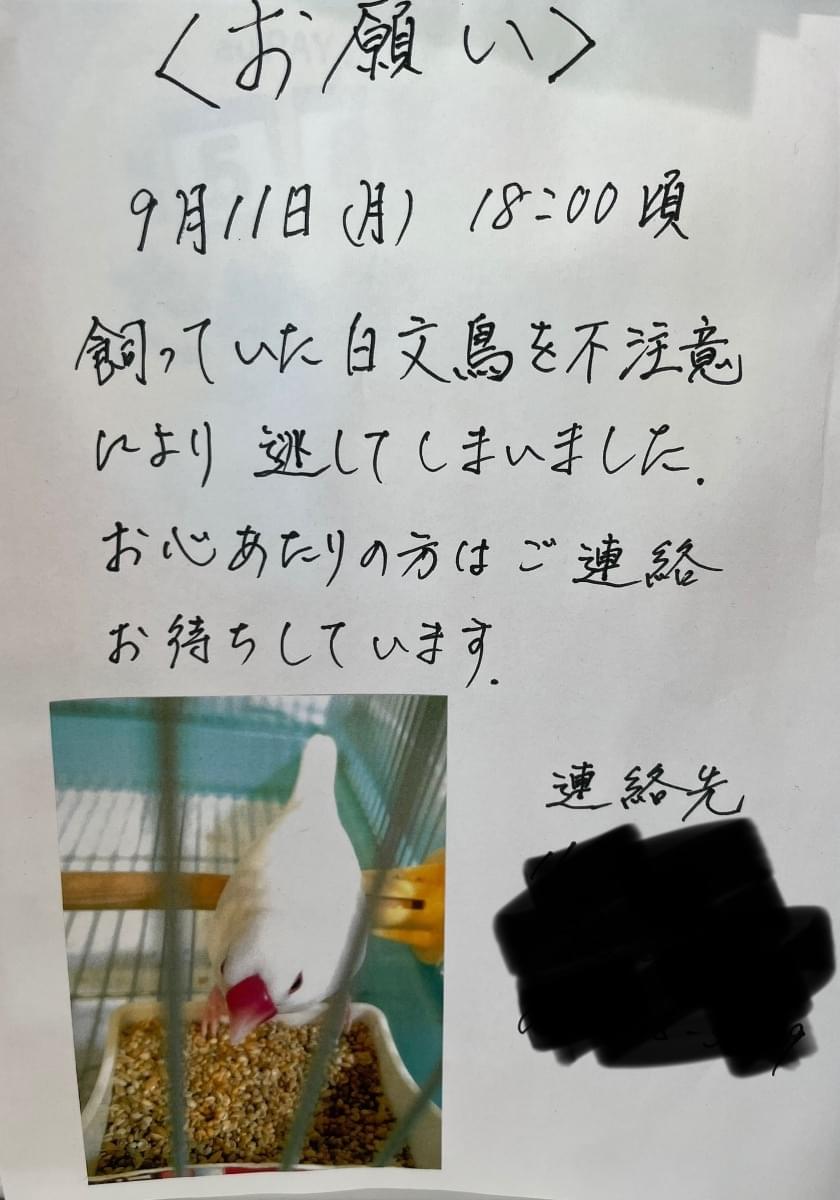 〈お願い〉
9月11日(月) 18:00頃
飼っていた白文鳥を不注意
により 逃してしまいました.
お心あたりの方はご連絡
お待ちしています.
連絡先